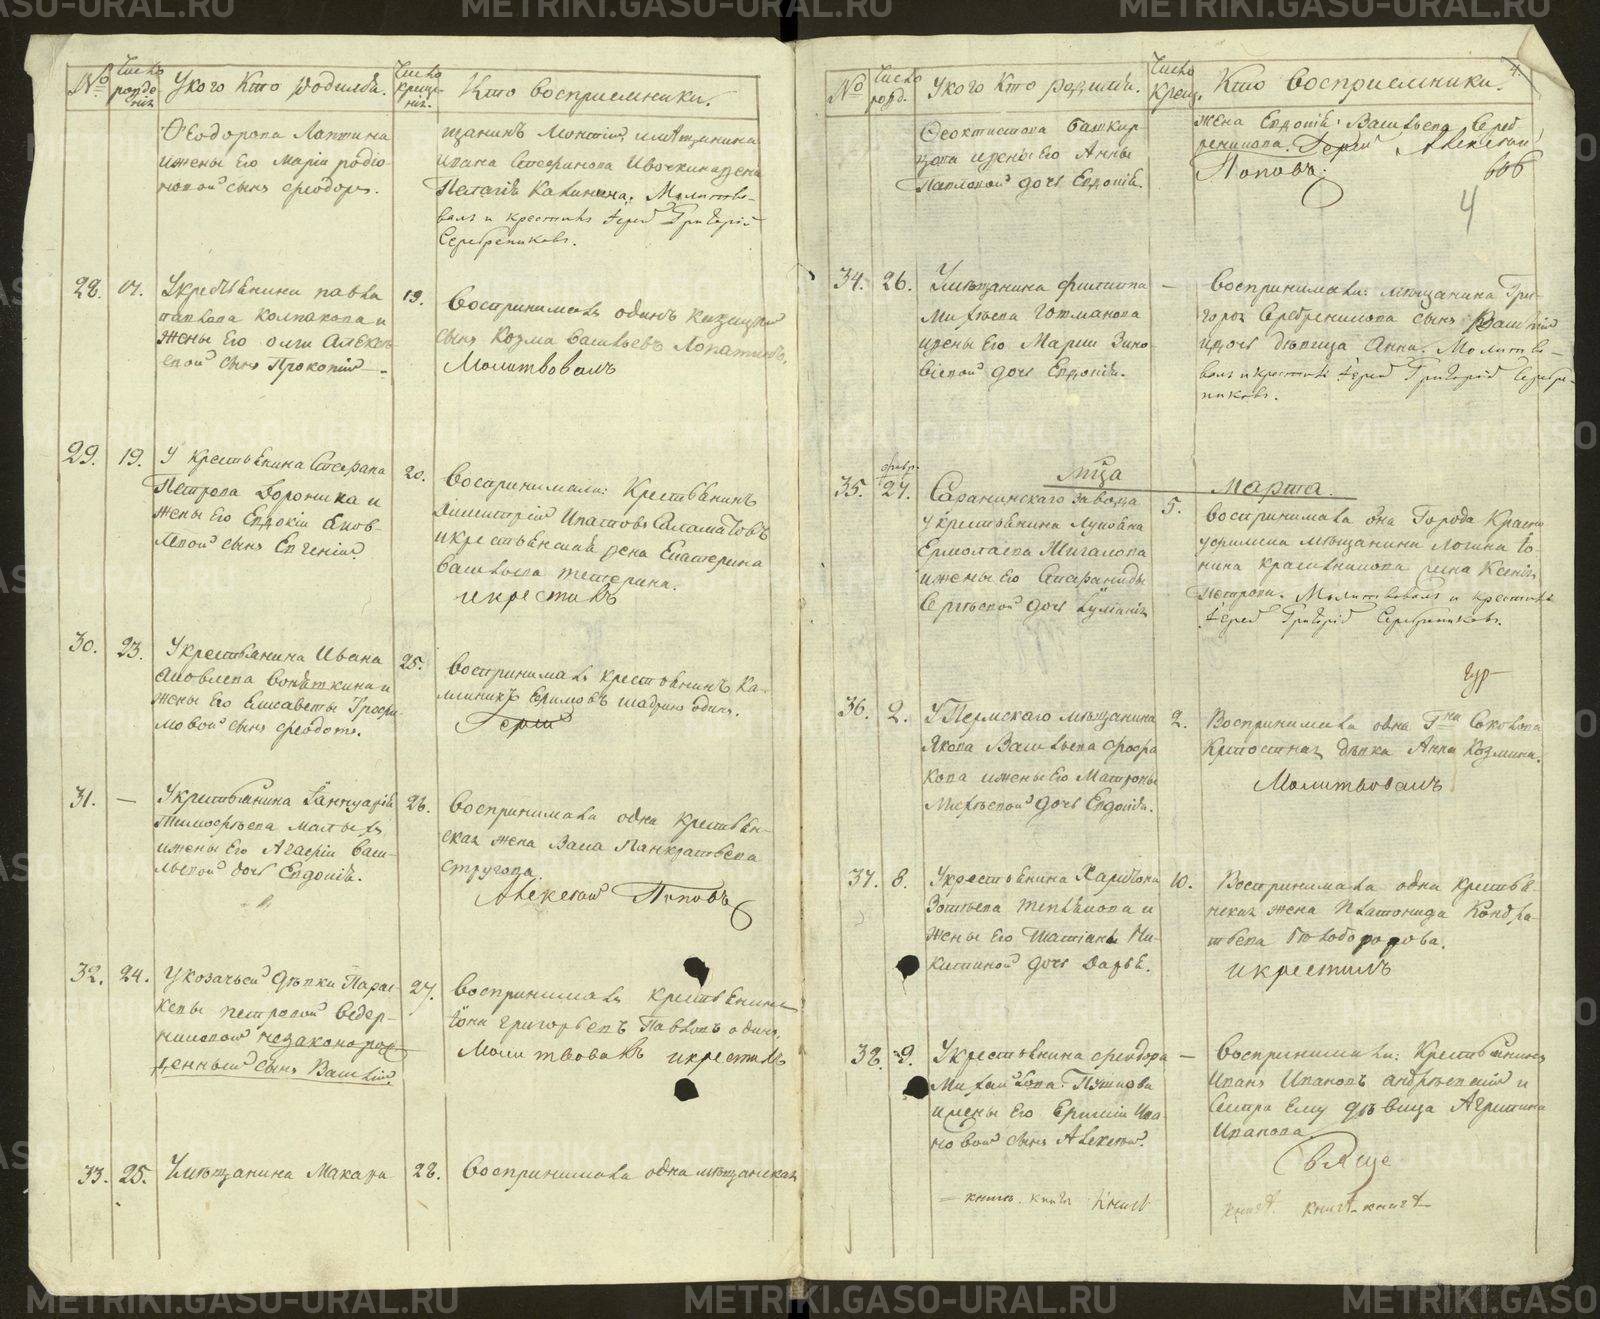 METRIKI.GASO-URAL.RU
№
Число рожде-ния
У кого Кто родился.
Число креще-ния.
Кто восприемники.
Ѳеодорова Лаптина
и жены Его Маріи родіо-
новой сынъ Ѳеодоръ.
щанинъ
Ивана
Пелагія Калинина. Молитво-
валъ и крестилъ Іерей Григорій
Серебренниковъ.
28. 17.
У крестьянина Павла
Колпакова и
жены Его Олги Алексѣ-
евой сынъ Прокопій.
19.
Воспринималъ одинъ
сынъ Козма Васильевъ Лопатинъ.
Молитвовалъ
29. 19.
У крестьянина Стефана
Петрова Дороника и
жены Его Евдокіи Яков-
левой сынъ Евгеній.
20.
Воспринимали: Крестьянинъ
Димитрій Ипатовъ
и крестьянская жена Екатерина
Васильева Тетерина.
и крестилъ
30. 23.
У крестьянина Ивана
Яковлева и
жены Его Елисаветы Трофи-
мовой сынъ Ѳеодотъ.
25.
Воспринималъ крестьянинъ Ка-
линикъ Ефимовъ Шадринъ одинъ.
Іерей
31. —
У крестьянина Іаннуарія
Тимофѣева Малыхъ
и жены Его Агафіи Васи-
льевой дочь Евдокія.
26.
Воспринимала одна крестьян-
ская жена Васса Панкратьева
Стругова.
Алексей Поповъ
32. 24.
У козачьей дѣвки Парас-
кевы Петровой Ведер-
никовой незаконорож-
денный сынъ Василій.
27.
Воспринималъ крестьянинъ
Іона Григорьевъ Павловъ одинъ.
Молитвовалъ и крестилъ
33. 25.
У мѣщанина Макара
28.
Воспринимала одна мѣщанская
№
Число рожд.
У кого Кто родился.
Число Крещ.
Кто восприемники.
4.
Ѳеоктистова Башкир-
цова и жены Его Анны
Павловой дочь Евдокія.
жена Евдокія Васильева Сереб-
реникова. Іерей Алексей
Поповъ.
4
34. 26.
У мѣщанина Филиппа
Михѣева Готманова
и жены Его Маріи Зино-
віевой дочь Евдокія.
—
Воспринимали: мѣщанина Гри-
горья Серебреникова сынъ Василій
и дочь дѣвица Анна. Молитво-
валъ и крестилъ Іерей Григорій Серебре-
никовъ.
Мца Марта.
35. февр. 27.
Саранинскаго завода
у крестьянина Лукояна
Ермолаева Жигалова
и жены Его Стефаниды
Сергѣевой дочь Іуліанія
5.
Воспринимала одна Города Красно-
уфимска мѣщанина Логина Іо-
нина Красильникова жена Ксенія
Петрова. Молитвовалъ и крестилъ
Іерей Григорій Серебренниковъ.
36. 2.
У Пермскаго мѣщанина
Якова Васильева
и жены Его Матроны
Михѣевой дочь Евдокія.
2.
Воспринимала одна Гна Соколова
Крѣпостная дѣвка Анна Козмина.
Молитвовалъ
37. 8.
У крестьянина Харитона
Зотѣева Теплякова и
жены Его Татіаны Ни-
китиной дочь Дарья.
10.
Воспринимала одна крестья-
нская жена Платонида Кондра-
тьева Бѣлобородова.
и крестилъ
38. 9.
У крестьянина Ѳеодора
Михайлова
и жены Его Ераміи Ива-
новой сынъ Алексей.
—
Воспринимали: Крестьянинъ
Иванъ Ивановъ Андрѣевскій и
Сестра Ему дѣвица Агрипина
Иванова.